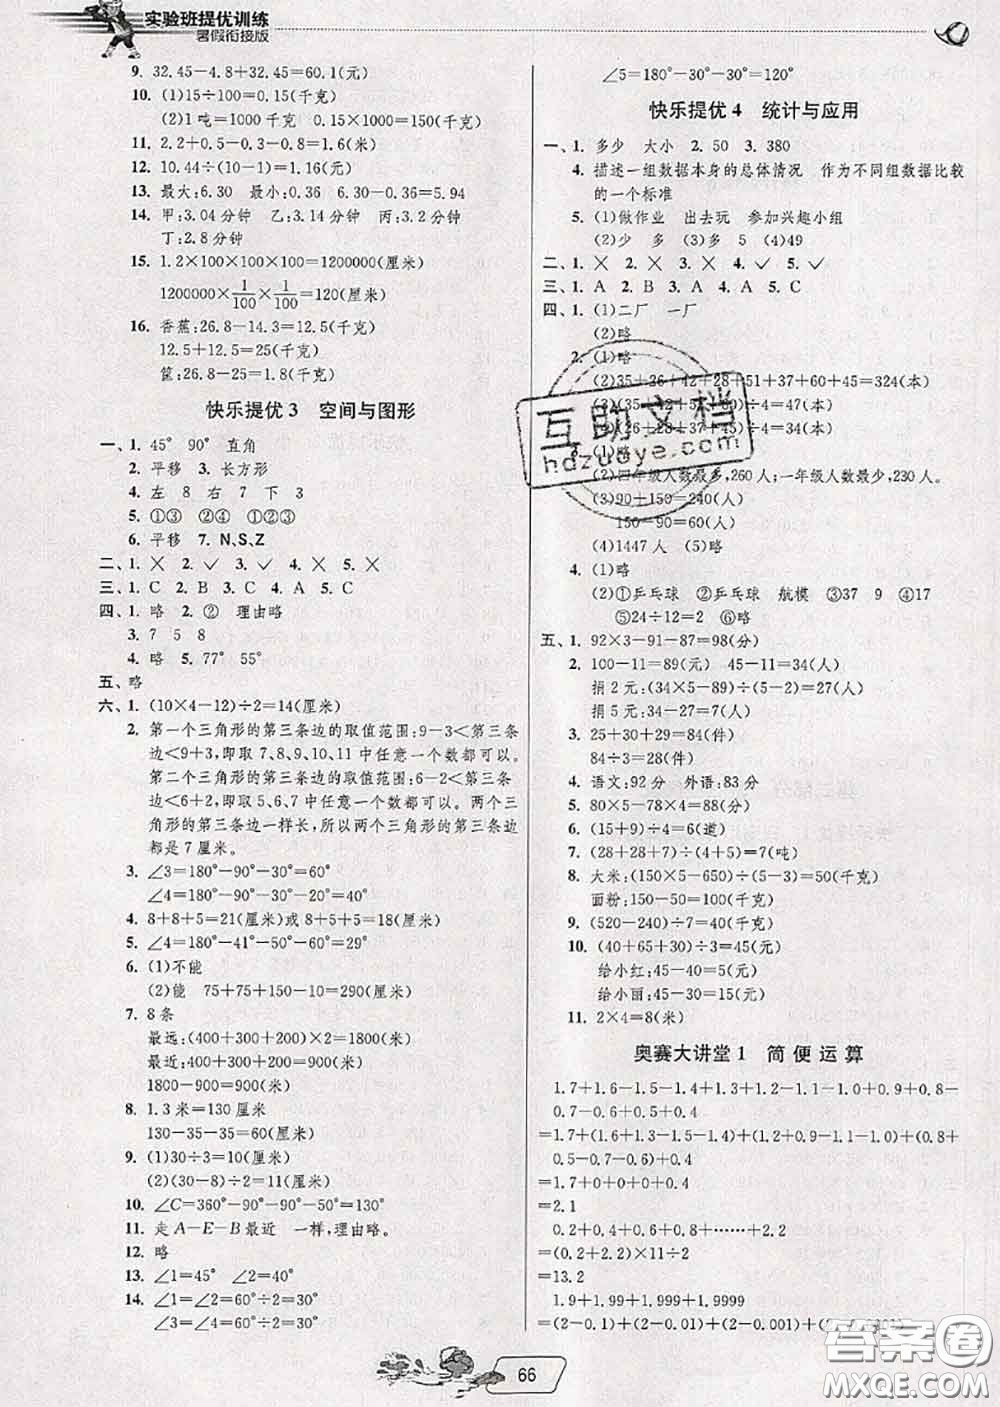 实验班提优训练
暑假衔接版
9. 32.45－4.8＋32.45＝60.1(元)
10. (1)15÷100＝0.15(千克)
(2)1吨＝1000千克 0.15×1000＝150(千克)
11. 2.2＋0.5－0.3－0.8＝1.6(米)
12. 10.44÷(10－1)＝1.16(元)
13. 最大:6.30 最小:0.36 6.30－0.36＝5.94
14. 甲:3.04分钟 乙:3.14分钟 丙:3.2分钟
丁:2.8分钟
15. 1.2×100×100×100＝1200000(厘米)
1200000×1/100×1/100＝120(厘米)
16. 香蕉:26.8－14.3＝12.5(千克)
12.5＋12.5＝25(千克)
筐:26.8－25＝1.8(千克)
快乐提优3 空间与图形
一、1. 45° 90° 直角
2. 平移 3. 长方形
4. 左 8 右 7 下 3
5. ①③ ②④ ①②③
6. 平移 7. N、S、Z
二、1. × 2. √ 3. √ 4. × 5. ×
三、1. C 2. B 3. C 4. A 5. C
四、1. 略 2. ② 理由略
3. 7 5 8
4. 略 5. 77° 55°
五、略
六、1. (10×4－12)÷2＝14(厘米)
2. 第一个三角形的第三条边的取值范围:9－3＜第三条
边＜9＋3,即取7、8、9、10、11中任意一个数都可以。
第二个三角形的第三条边的取值范围:6－2＜第三条
边＜6＋2,即取5、6、7中任意一个数都可以。两个三
角形的第三条边一样长,所以两个三角形的第三条边
都是7厘米。
3. ∠3＝180°－90°－30°＝60°
∠4＝180°－90°－30°－20°＝40°
4. 8＋8＋5＝21(厘米)或8＋5＋5＝18(厘米)
5. ∠4＝180°－41°－50°－60°＝29°
6. (1)不能
(2)能 75＋75＋150－10＝290(厘米)
7. 8条
最远:(400＋300＋200)×2＝1800(米)
最近:400＋300＋200＝900(米)
1800－900＝900(米)
8. 1.3米＝130厘米
130－35－35＝60(厘米)
9. (1)30÷3＝10(厘米)
(2)(30－8)÷2＝11(厘米)
10. ∠C＝360°－90°－90°－50°＝130°
11. 走A－E－B最近 一样,理由略。
12. 略
13. ∠1＝45° ∠2＝40°
14. ∠1＝∠2＝60°÷2＝30°
∠3＝∠4＝60°÷2＝30°
∠5＝180°－30°－30°＝120°
快乐提优4 统计与应用
一、1. 多少 大小 2. 50 3. 380
4. 描述一组数据本身的总体情况 作为不同组数据比较
的一个标准
5. (1)做作业 出去玩 参加兴趣小组
(2)少 多 (3)多 5 (4)49
二、1. × 2. × 3. × 4. √ 5. √
三、1. A 2. B 3. C 4. A 5. C
四、1. (1)二厂 一厂
(2)略
2. (1)略
(2)35＋36＋42＋28＋51＋37＋50＋45＝324(本)
÷4＝47(本)
(2)四年级人数最多,260人;一年级人数最少,230人。
(3)90＋150＝240(人)
150－90＝60(人)
(4)1447人 (5)略
4. (1)略
(2)①乒乓球 ②乒乓球 航模 ③37 9 ④17
⑤24÷12＝2 ⑥略
五、1. 92×3－91－87＝98(分)
2. 100－11＝89(人) 45－11＝34(人)
捐2元:(34×5－89)÷(5－2)＝27(人)
捐5元:34－27＝7(人)
3. 25＋30＋29＝84(件)
84÷3＝28(件)
4. 语文:92分 外语:83分
5. 80×5－78×4＝88(分)
6. (15＋9)÷4＝6(道)
7. (28＋28＋7)÷(4＋5)＝7(吨)
8. 大米:(150×5－650)÷(5－3)＝50(千克)
面粉:150－50＝100(千克)
9. (520－240)÷7＝40(千克)
10. (40＋65＋30)÷3＝45(元)
给小红:45－40＝5(元)
给小丽:45－30＝15(元)
11. 2×4＝8(米)
奥赛大讲堂1 简便运算
1.7＋1.6－1.5－1.4＋1.3＋1.2－1.1－1.0＋0.9＋0.8－
0.7－0.6＋0.5＋0.4
＝1.7＋(1.6＋1.3－1.5－1.4)＋(1.2＋0.9－1.1－1.0)＋(0.8＋
0.5－0.7－0.6)＋0.4
＝1.7＋0＋0＋0＋0.4
＝2.1
0.2＋0.4＋0.6＋0.8＋……＋2.2
＝(0.2＋2.2)×11÷2
＝13.2
1.9＋1.99＋1.999＋1.9999
＝(2－0.1)＋(2－0.01)＋(2－0.001)＋
66
互助文档
hdzuoye.com
答案圈
MXQE.COM